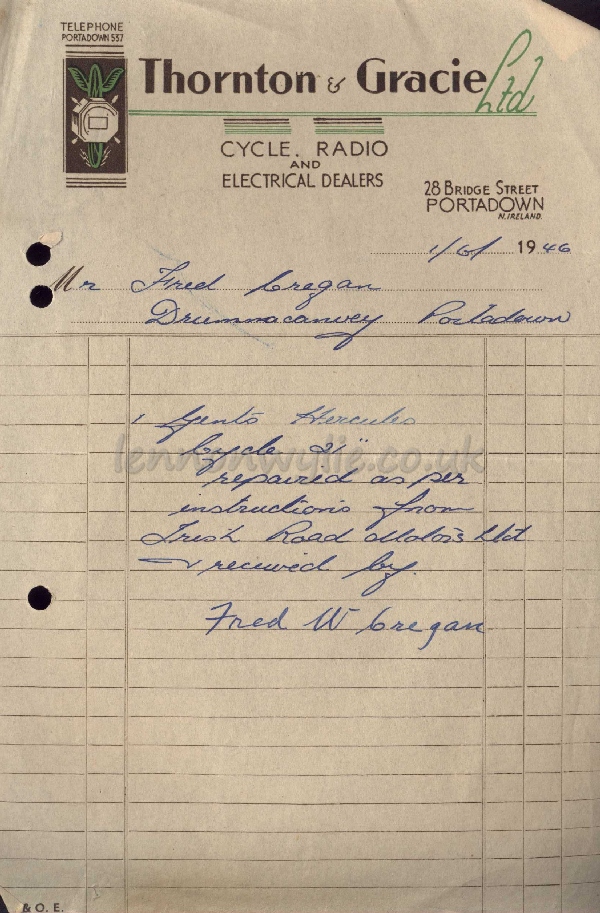 TELEPHONE
PORTADOWN 537
Thornton & Gracie Ltd
CYCLE, RADIO
AND
ELECTRICAL DEALERS
28 BRIDGE STREET
PORTADOWN
N. IRELAND.
1/6/ 1946
Mr Fred Cregan
Drumnacanvey Portadown
1 Gents Hercules
Cycle 21"
repaired as per
instructions from
Irish Road Motors Ltd
& received by.
Fred W Cregan
lennonwylie.co.uk
& O. E.